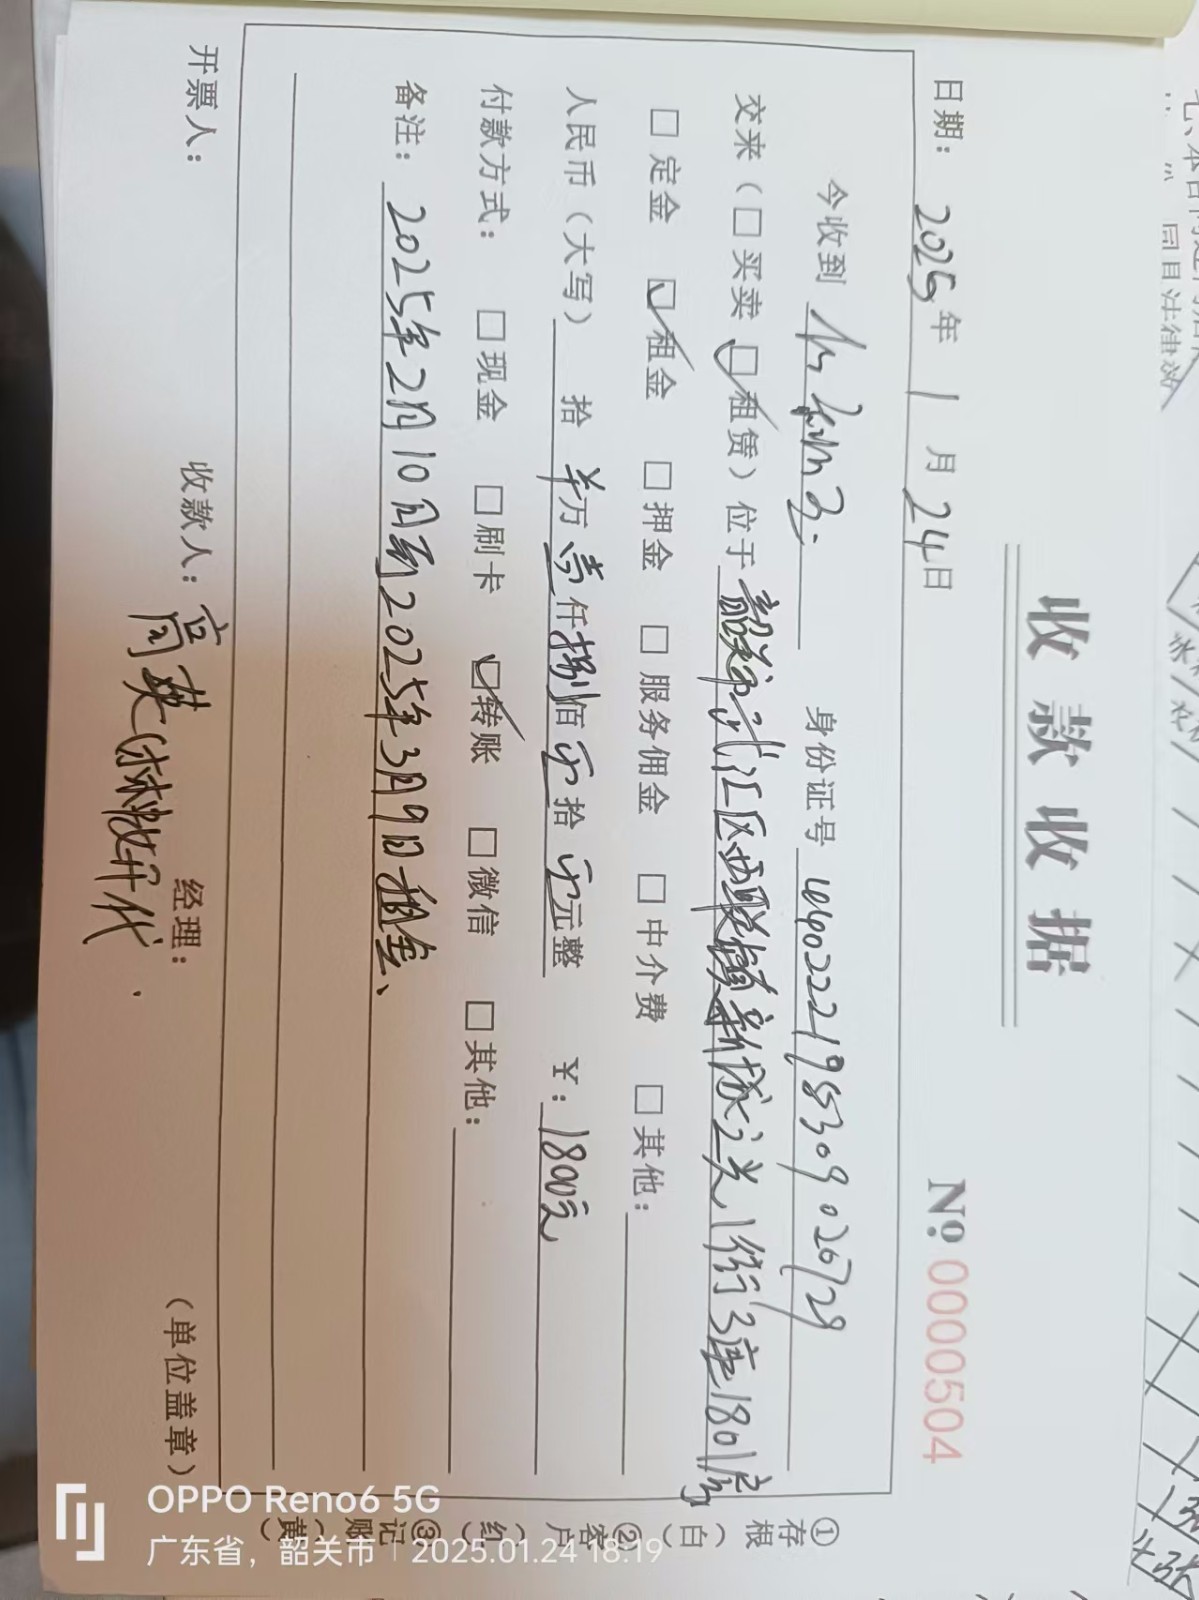 收款收据
№ 0000504
日期：2025年1月24日
今收到 身份证号
交来（□买卖 ☑租赁）位于韶关市武江区西联镇新城之光1街3座1801房
□定金 ☑租金 □押金 □服务佣金 □中介费 □其他：
人民币（大写） 拾 羊万 壹仟捌佰零拾零元整 ￥：1800元
付款方式：□现金 □刷卡 ☑转账 □微信 □其他：
备注：2025年2月10日至2025年3月9日租金、
开票人： 收款人：高英 经理： （单位盖章）
①存根（白）②客户（红）③记账（黄）
OPPO Reno6 5G
广东省，韶关市 | 2025.01.24 18:19